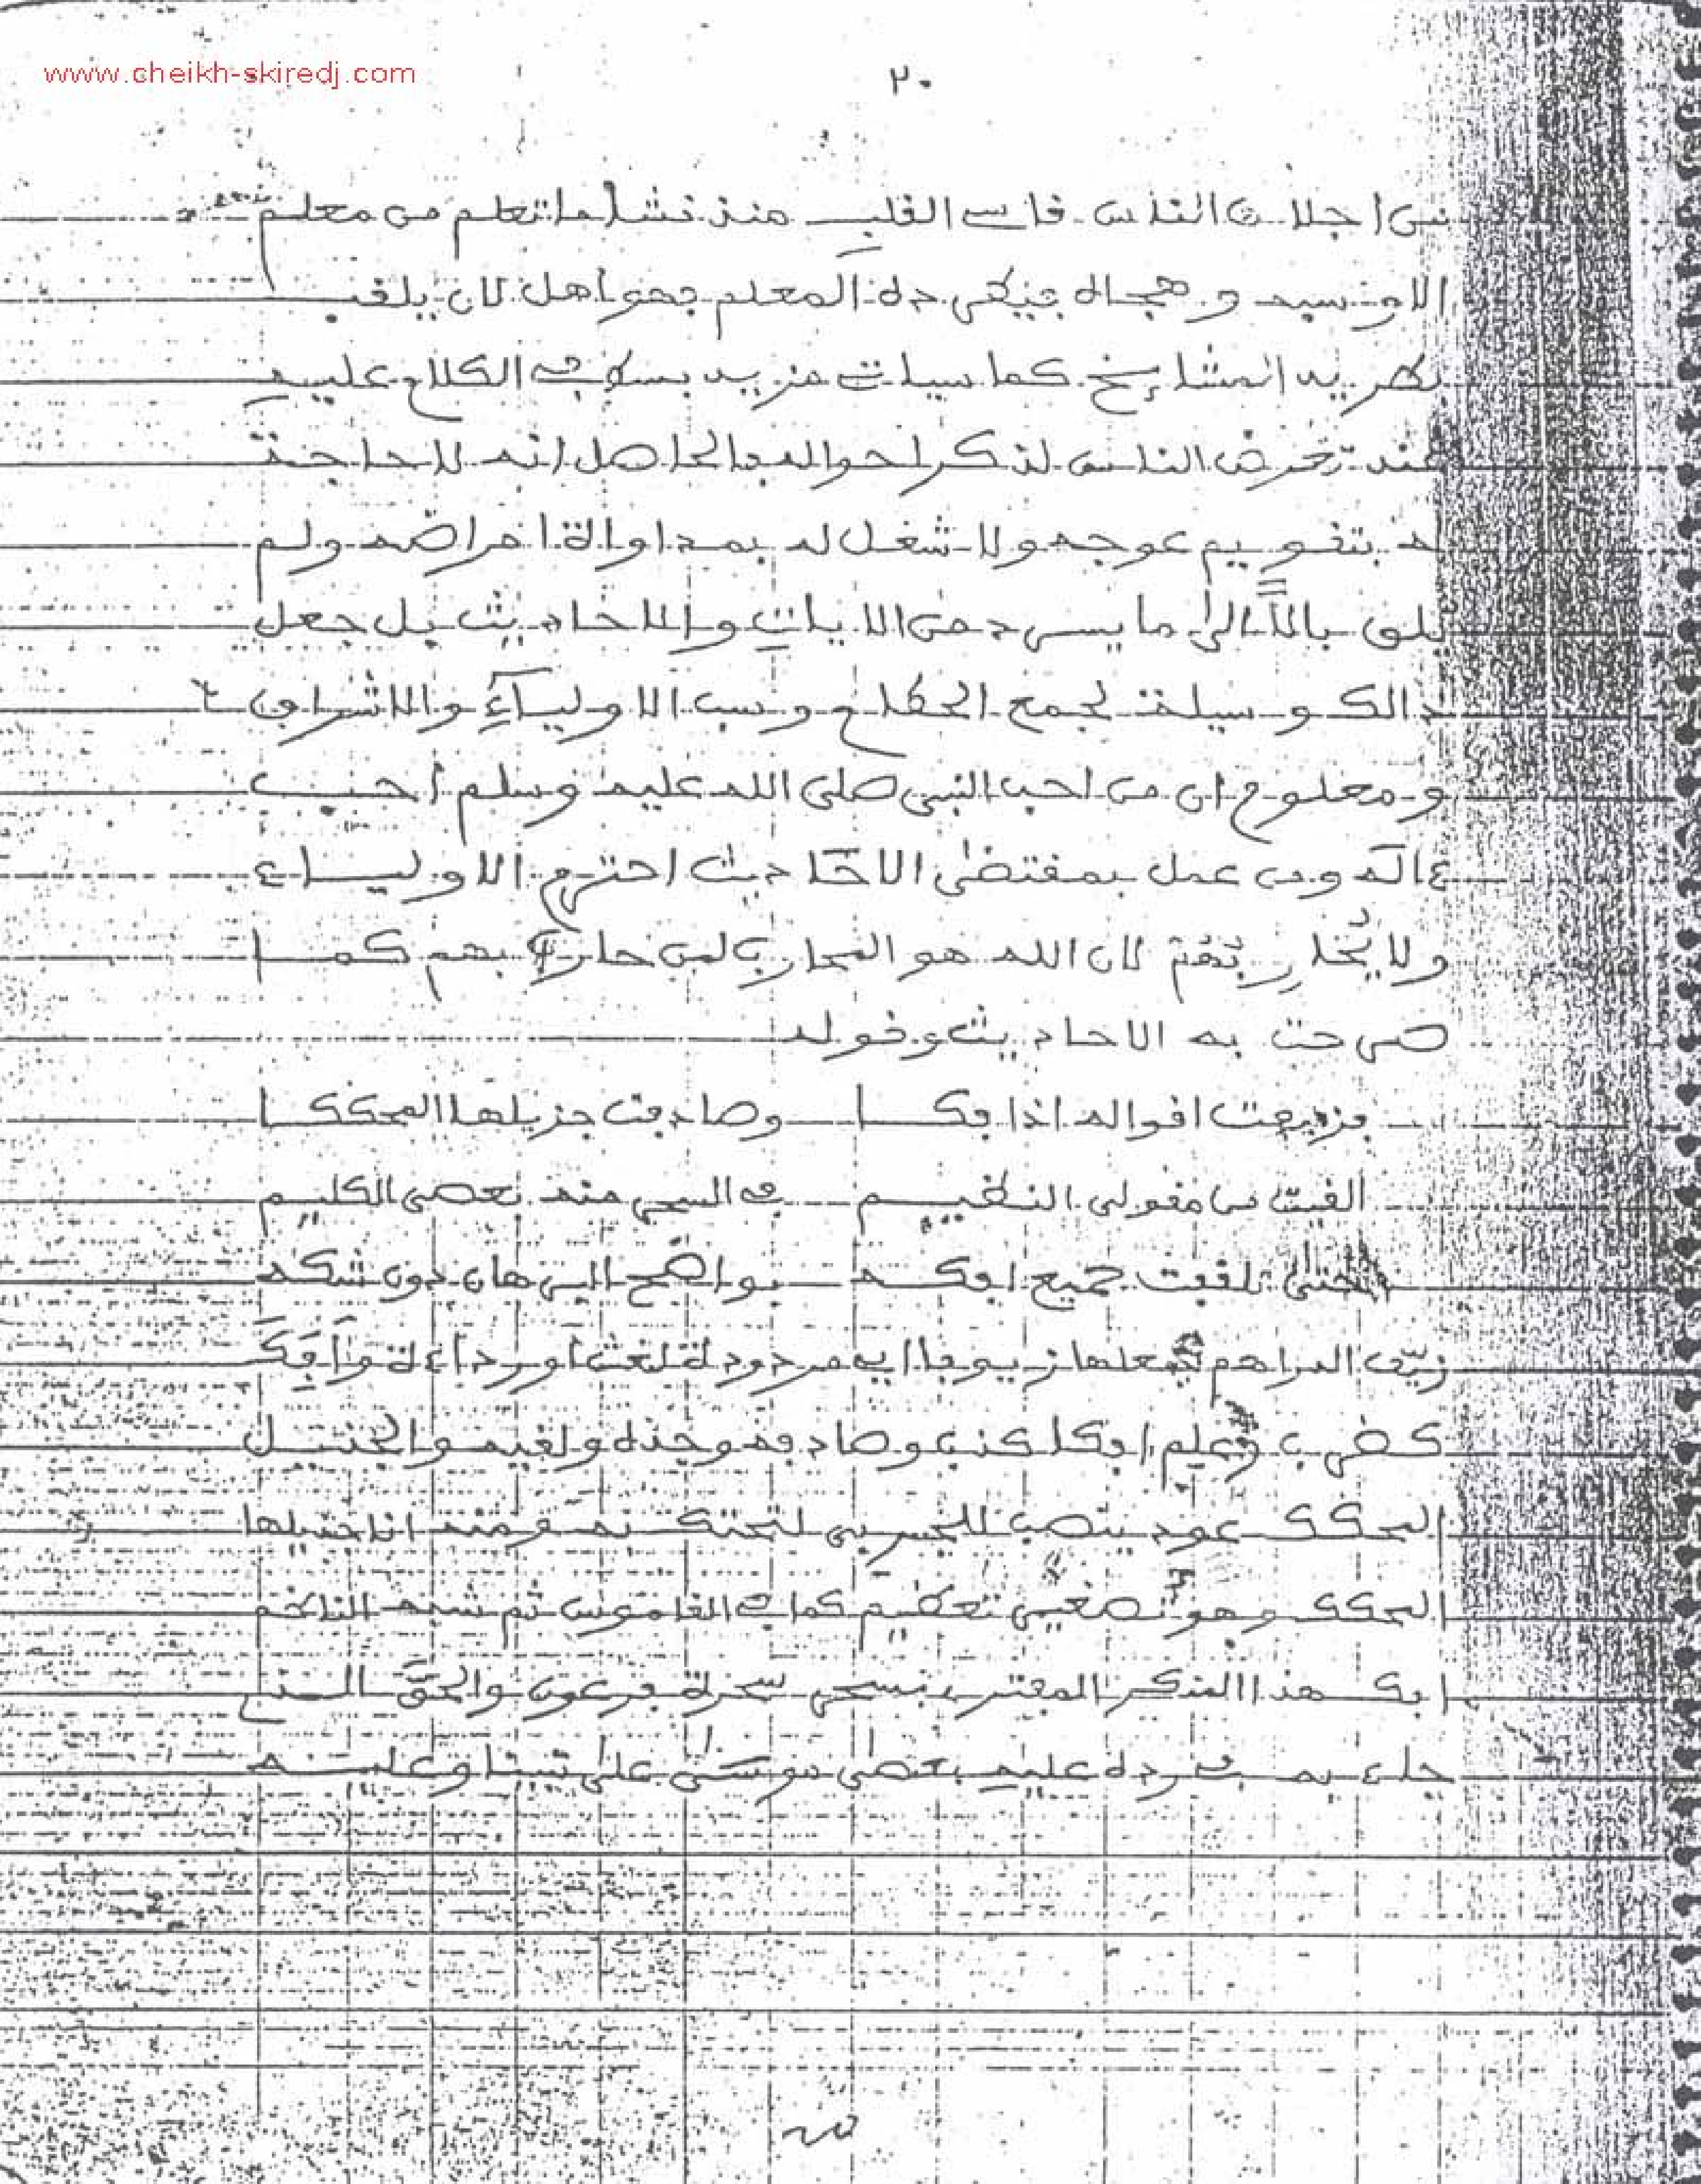 www.cheikh-skiredj.com
٢٠
من اجلاف الناس قاسى القلب منذ نشأ ما تعلم من معلم
الا وسبه وهجاه فينكر حق المعلم فهو أهل لان يلقب
بطريد المشائخ كما سيأتى مزيد بسط فى الكلام عليه
عند تعرض الناس لذكر احواله فالحاصل انه لا حاجة
له بتقويم عوجه ولا شغل له بمداواة امراضه ولم
يلق بالاً الى ما يسرد من الايات والاحاديث بل جعل
ذالك وسيلة لجمع الحطام وسب الاولياء والاشراف
ومعلوم ان من احب النبى صلى الله عليه وسلم أحب
ءاله ومن عمل بمقتضى الاحاديث احترم الاولياء
ولا يحاربهم لان الله هو المحارب لمن حاربهم كما
صرحت به الاحاديث وقوله
فزيفت اقواله اذا فكا وصادفت جزيلها المحككا
الفيت من مقولى النظيم فى السحر منه بعصى الكليم
حتى تلقفت جميع افكه بواضح البرهان دون شكه
زيّف الدراهم جعلها زيوفا اي مردودة لغش او رداءة وأفك
كضرب وعلم افكا كذب وصادفه وجده ولقيه والجذيل
المحكك عود ينصب للجربى لتحتك به ومنه انا جذيلها
المحكك وهو تصغير تعظيم كما فى القاموس ثم شبه الناظم
افك هذا المنكر المفترى بسحر سحرة فرعون والحق الذى
جاء به فى رده عليه بعصى موسى على نبينا وعليه